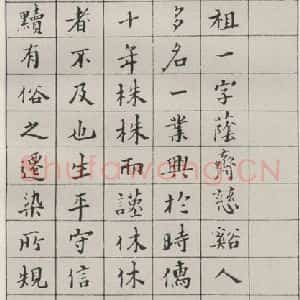 祖一字蔭齋慈谿人
多名一業興於時儁
十年株株而謹休休
者不及也生平守信
黷有俗之遷染所規
Shufawang.CN